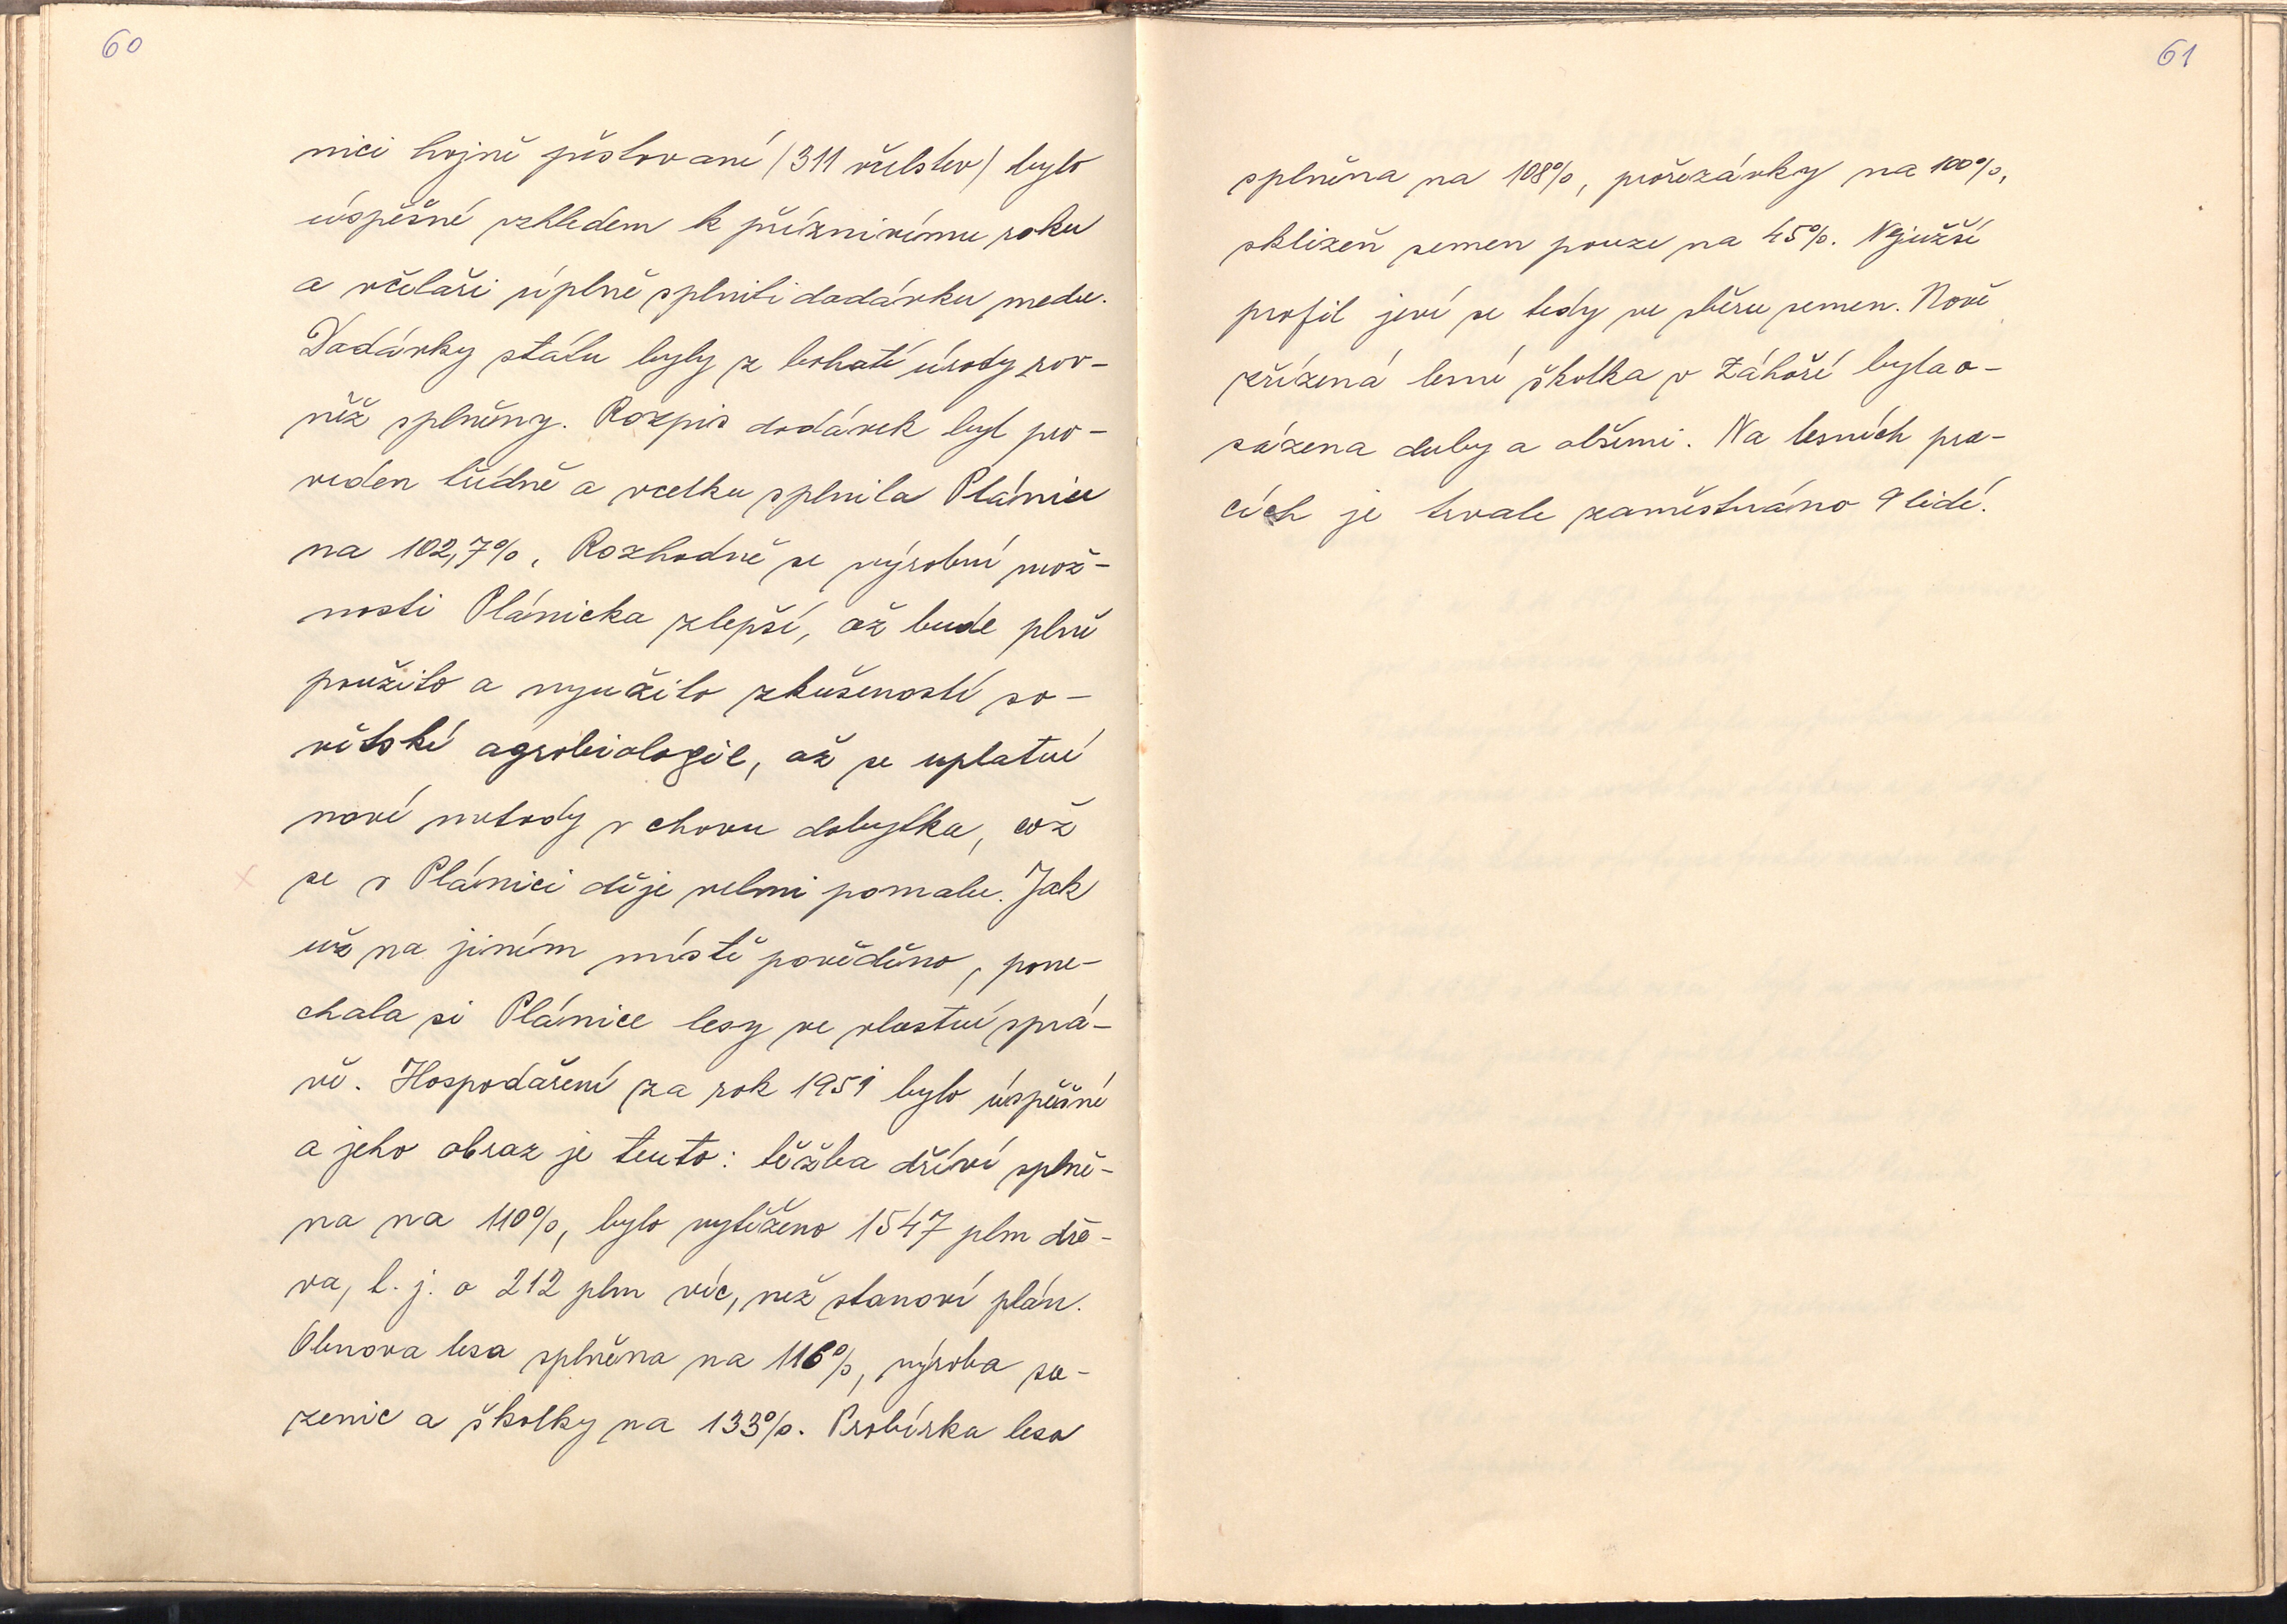 60
nici hojně pěstované (311 včelstev) bylo
úspěšné vzhledem k příznivému roku
a včelaři úplně splnili dodávku medu.
Dodávky státu byly z bohaté úrody rov-
něž splněny. Rozpis dodávek byl pro-
veden třídně a vcelku splnila Plánice
na 102,7%. Rozhodně se výrobní mož-
nosti Plánicka zlepší, až bude plně
použito a využito zkušeností so-
větské agrobiologie, až se uplatní
nové metody v chovu dobytka, což
se v Plánici děje velmi pomalu. Jak
už na jiném místě pověděno, pone-
chala si Plánice lesy ve vlastní sprá-
vě. Hospodaření za rok 1951 bylo úspěšné
a jeho obraz je tento: těžba dříví splně-
na na 110%, bylo vytěženo 1547 plm dře-
va, t. j. o 212 plm víc, než stanoví plán.
Obnova lesa splněna na 116%, výroba sa-
zenic a školky na 133%. Probírka lesa
61
splněna na 108%, prořezávky na 100%,
sklizeň semen pouze na 45%. Nejužší
profil jeví se tedy ve sběru semen. Nově
zřízená lesní školka v Záhoří byla o-
sázena duby a olšemi. Na lesních pra-
cích je trvale zaměstnáno 9 lidí.